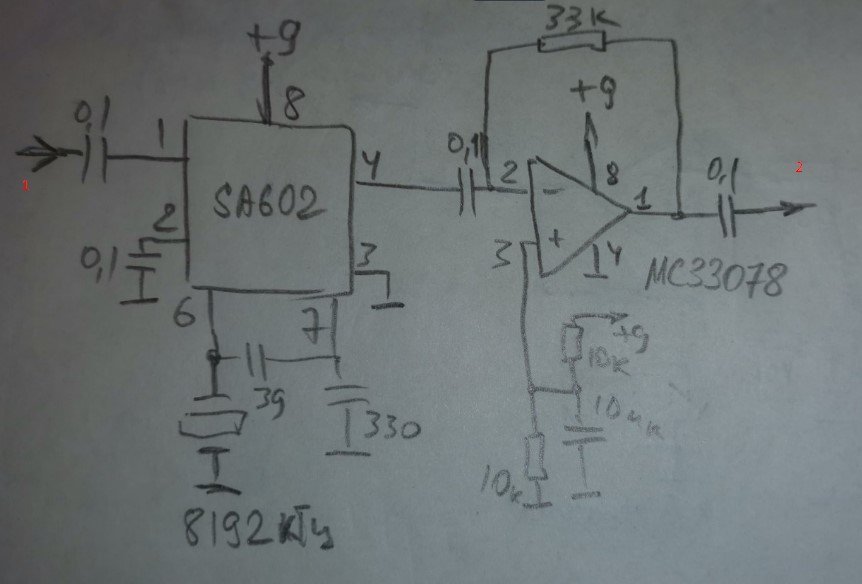 33К
+9
+9
0,1
8
1
4
0,1
2
8
0,1
2
1
SA602
−
1
2
0,1
3
3
+
4
МС33078
6
7
+9
10к
39
330
10мк
10к
8192 кГц